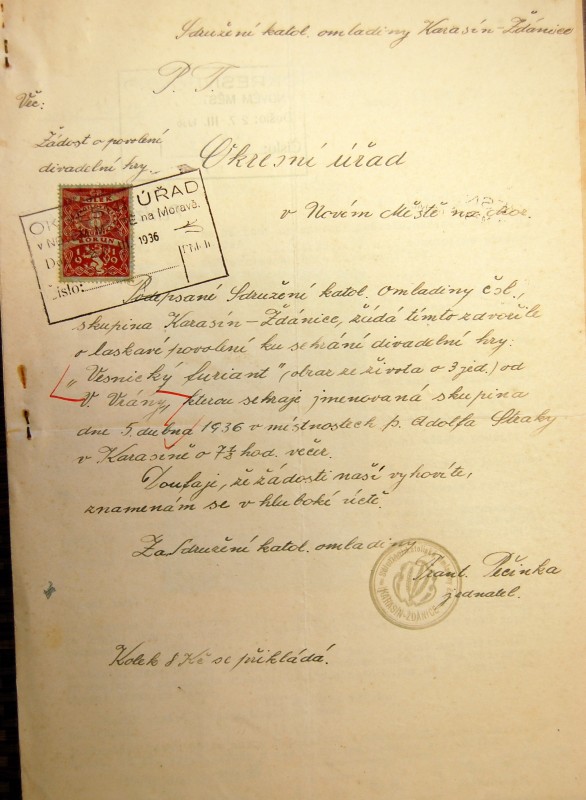 Sdružení katol. omladiny Karasín-Ždánice
P. T.
Věc:
Žádost o povolení
divadelní hry.
Okresní úřad
v Novém Městě na Mor.
OKRESNÍ ÚŘAD
v Novém Městě na Moravě.
1936
Číslo:
KOLEK
KORUN
1919
Podepsané Sdružení katol. omladiny čsl.,
skupina Karasín-Ždánice, žádá tímto zdvořile
o laskavé povolení ku sehrání divadelní hry:
„Vesnický furiant" (obraz ze života o 3 jed.) od
V. Vrány, kterou sehraje jmenovaná skupina
dne 5. dubna 1936 v místnostech p. Adolfa Straky
v Karasíně o 7½ hod. večer.
Doufaje, že žádosti naší vyhovíte,
znamenám se v hluboké úctě.
Za Sdružení katol. omladiny
Frant. Pečinka
jednatel.
KARASÍN-ŽDÁNICE
Kolek 8 Kč se přikládá.